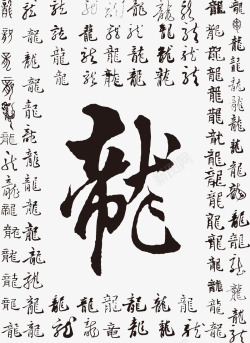 龍龍龍龍龍龍龍龍龍龍
龍龍龍龍龍龍龍龍龍龍
龍龍龍龍龍龍龍龍龍龍
龍龍龍龍龍龍龍龍龍龍
龍龍龍龍
龍龍龍龍
龍龍龍龍
龍龍龍龍
龍
龍龍龍龍
龍龍龍龍
龍龍龍龍
龍龍龍龍
龍龍龍龍龍龍龍龍龍
龍龍龍龍龍龍龍龍龍龍